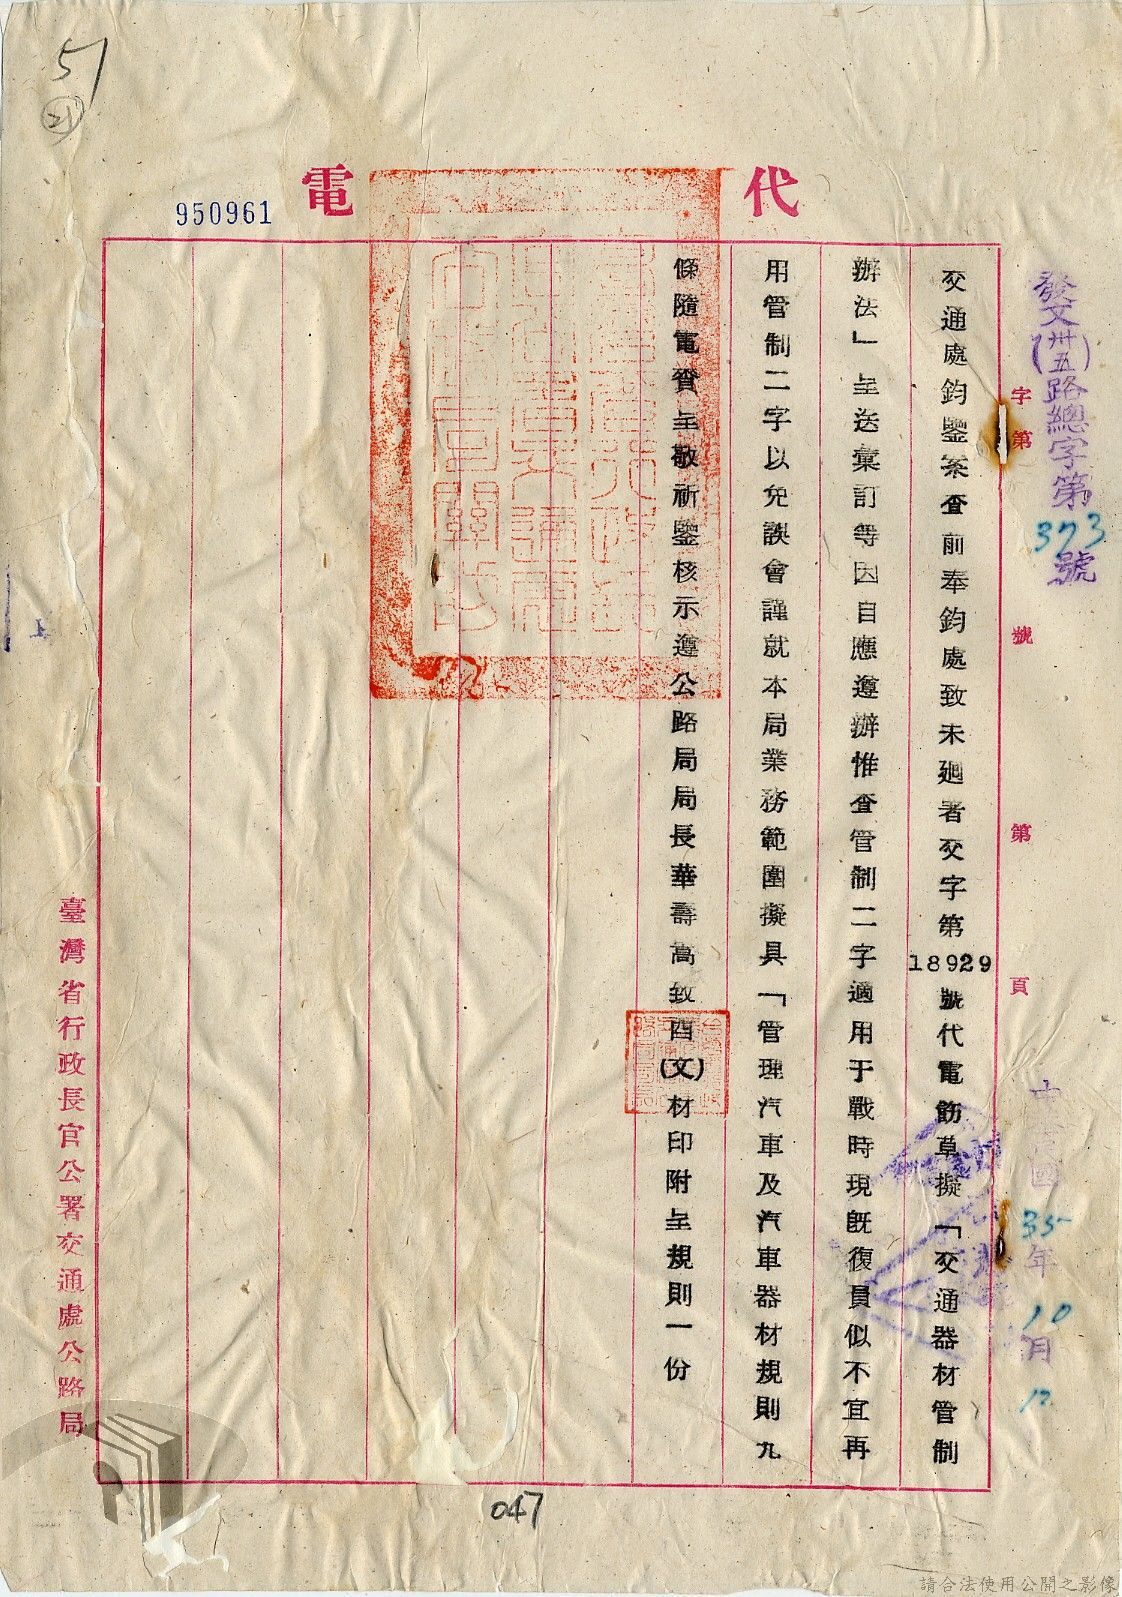 51
21
代電
950961
發文(卅五)路總字第373號
字第 號 第 頁
中華民國35年10月12
交通處鈞鑒案查前奉鈞處致未迴者交字第18929號代電飭草擬「交通器材管制
辦法」呈送彙訂等因自應遵辦惟查管制二字適用于戰時現既復員似不宜再
用管制二字以免誤會謹就本局業務範圍擬具「管理汽車及汽車器材規則九
條隨電賫呈敬祈鑒核示遵公路局局長華壽嵩致酉(文)材印附呈規則一份
臺灣省行政長官公署交通處公路局
047
請合法使用公開之影像